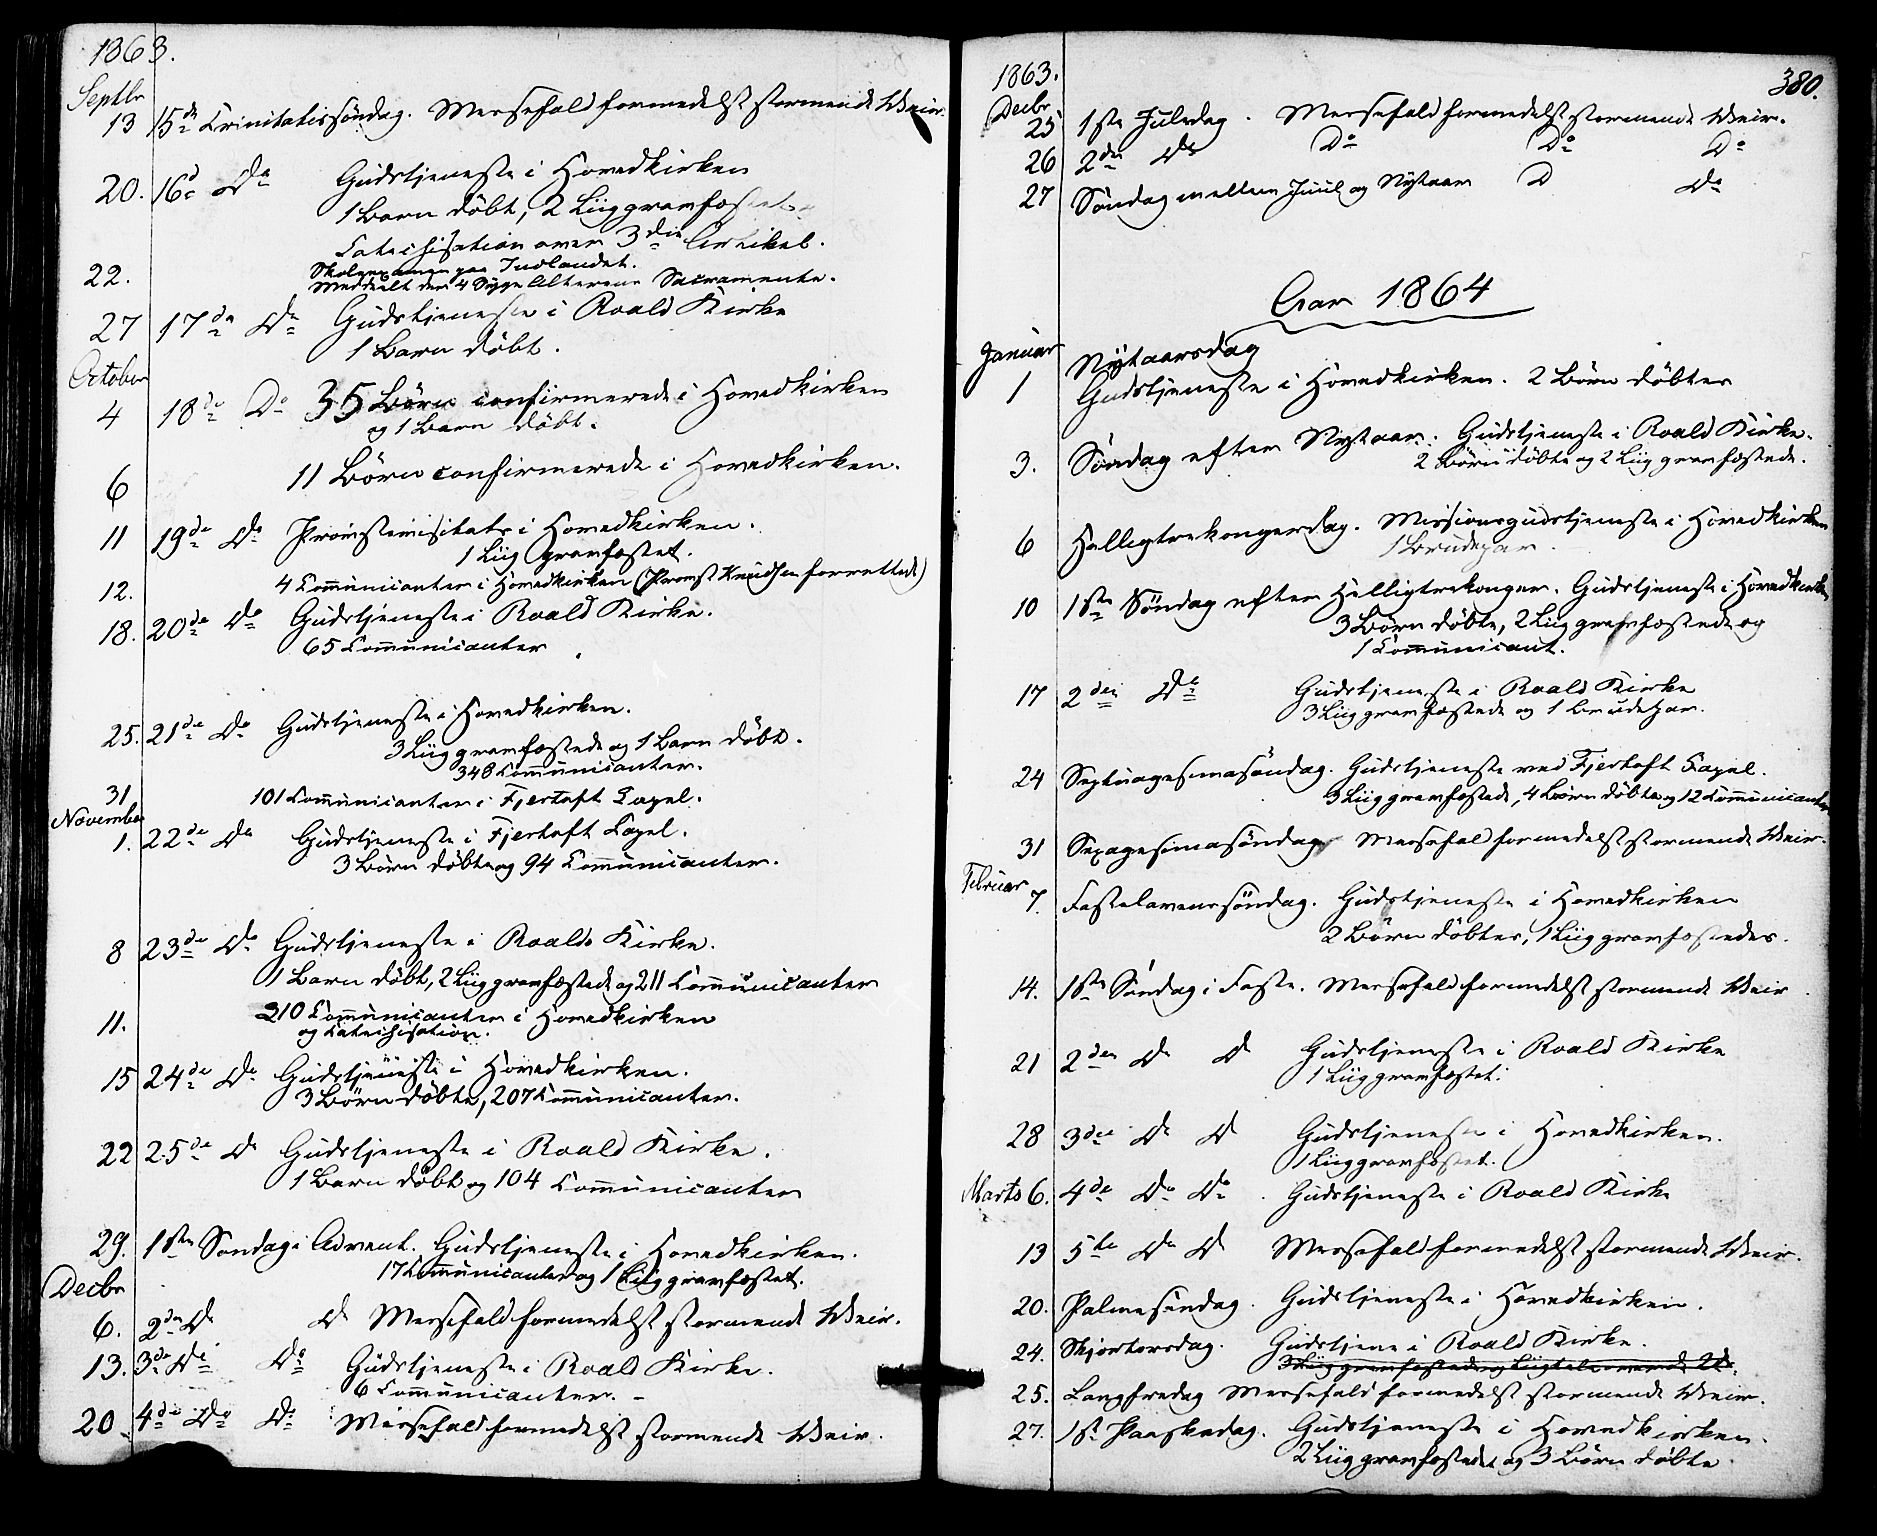 1863.
Septbr
13 15de Trinitatissøndag. Messefald formedelst stormende Veir.
20. 16d Do Gudstjeneste i Hovedkirken
1 Barn døbt, 2 Liig gravfæstet
Catechisation over 3die Artikel.
22. Skoleexamen paa Indlandet.
Meddeelt den 4 Syge Alterens Sacramente.
27 17de Do Gudstjeneste i Roald Kirke
1 Barn døbt.
October
4 18de Do 35 Børn confirmerede i Hovedkirken
og 1 Barn døbt.
6 11 Børn confirmerede i Hovedkirken.
11 19de Do Provstevisitats i Hovedkirken.
1 Liig gravfæstet.
12. 4 Communicanter i Hovedkirken (Provst Knudsen forrettede)
18. 20de Do Gudstjeneste i Roald Kirke.
65 Communicanter
25. 21de Do Gudstjeneste i Hovedkirken.
3 Liig gravfæstede og 1 Barn døbt.
348 Communicanter.
31 101 Communicanter i Fjertoft Capel.
November
1. 22de Do Gudstjeneste i Fjertoft Capel.
3 Børn døbte og 94 Communicanter.
8 23de Do Gudstjeneste i Roalds Kirke.
1 Barn døbt, 2 Liig gravfæstede og 211 Communicanter
11. 310 Communicanter i Hovedkirken
og Catechisation.
15 24de Do Gudstjeneste i Hovedkirken.
3 Børn døbte, 207 Communicanter.
22 25de Do Gudstjeneste i Roald Kirke.
1 Barn døbt og 104 Communicanter
29. 1ste Søndag i Advent. Gudstjeneste i Hovedkirken.
17 Communicanter og 1 Liig gravfæstet.
Decbr
6. 2den Do Do Messefald formedelst stormende Veir.
13. 3de Do Do Gudstjeneste i Roald Kirke.
6 Communicanter. –
20 4de Do Do Messefald formedelst stormende Veir.
380.
1863.
Decbr
25 1ste Juledag. Messefald formedelst stormende Veir.
26 2den Do Do Do Do
27 Søndag mellem Juul og Nytaar D Do
Aar 1864
Januar
Nytaarsdag
1 Gudstjeneste i Hovedkirken. 2 Børn døbter
3. Søndag efter Nytaar. Gudstjeneste i Roald Kirke.
2 Børn døbte og 2 Liig gravfæstede.
6 Helligtrekongersdag. Missionsgudstjeneste i Hovedkirken
1 Brudepar.
10 1ste Søndag efter Helligtrekonger. Gudstjeneste i Hovedkirken
3 Børn døbte, 2 Liig gravfæstede og
1 Communicant.
17 2den Do Gudstjeneste i Roald Kirke
3 Liig gravfæstede og 1 Brudepar.
24 Septuagesimasøndag. Gudstjeneste ved Fjertoft Capel.
3 Liig gravfæstede, 4 Børn døbte og 12 Communicanter
31 Sexagesimasøndag Messefald formedelst stormende Veir.
Februar
7. Fastelavenssøndag. Gudstjeneste i Hovedkirken
2 Børn døbter, 1 Liig gravfæstedes.
14. 1ste Søndag i Faste. Messefald formedelst stormende Veir
21 2den Do D Gudstjeneste i Roald Kirke
1 Liig gravfæstet.
28 3die Do D Gudstjeneste i Hovedkirken.
1 Liig gravfæstet.
Marts 6. 4de Do Do. Gudstjeneste i Roald Kirke
13 5te Do D Messefald formedelst stormende Veir.
20. Palmesøndag. Gudstjeneste i Hovedkirken.
24. Skjertorsdag. Gudstjene i Roald Kirke.
3 Liig gravfæstede og Liigtale over
25. Langfredag Messefald formedelst stormende Veir.
27. 1st Paaskedag. Gudstjeneste i Hovedkirken.
2 Liig gravfæstedet og 3 Børn døbte